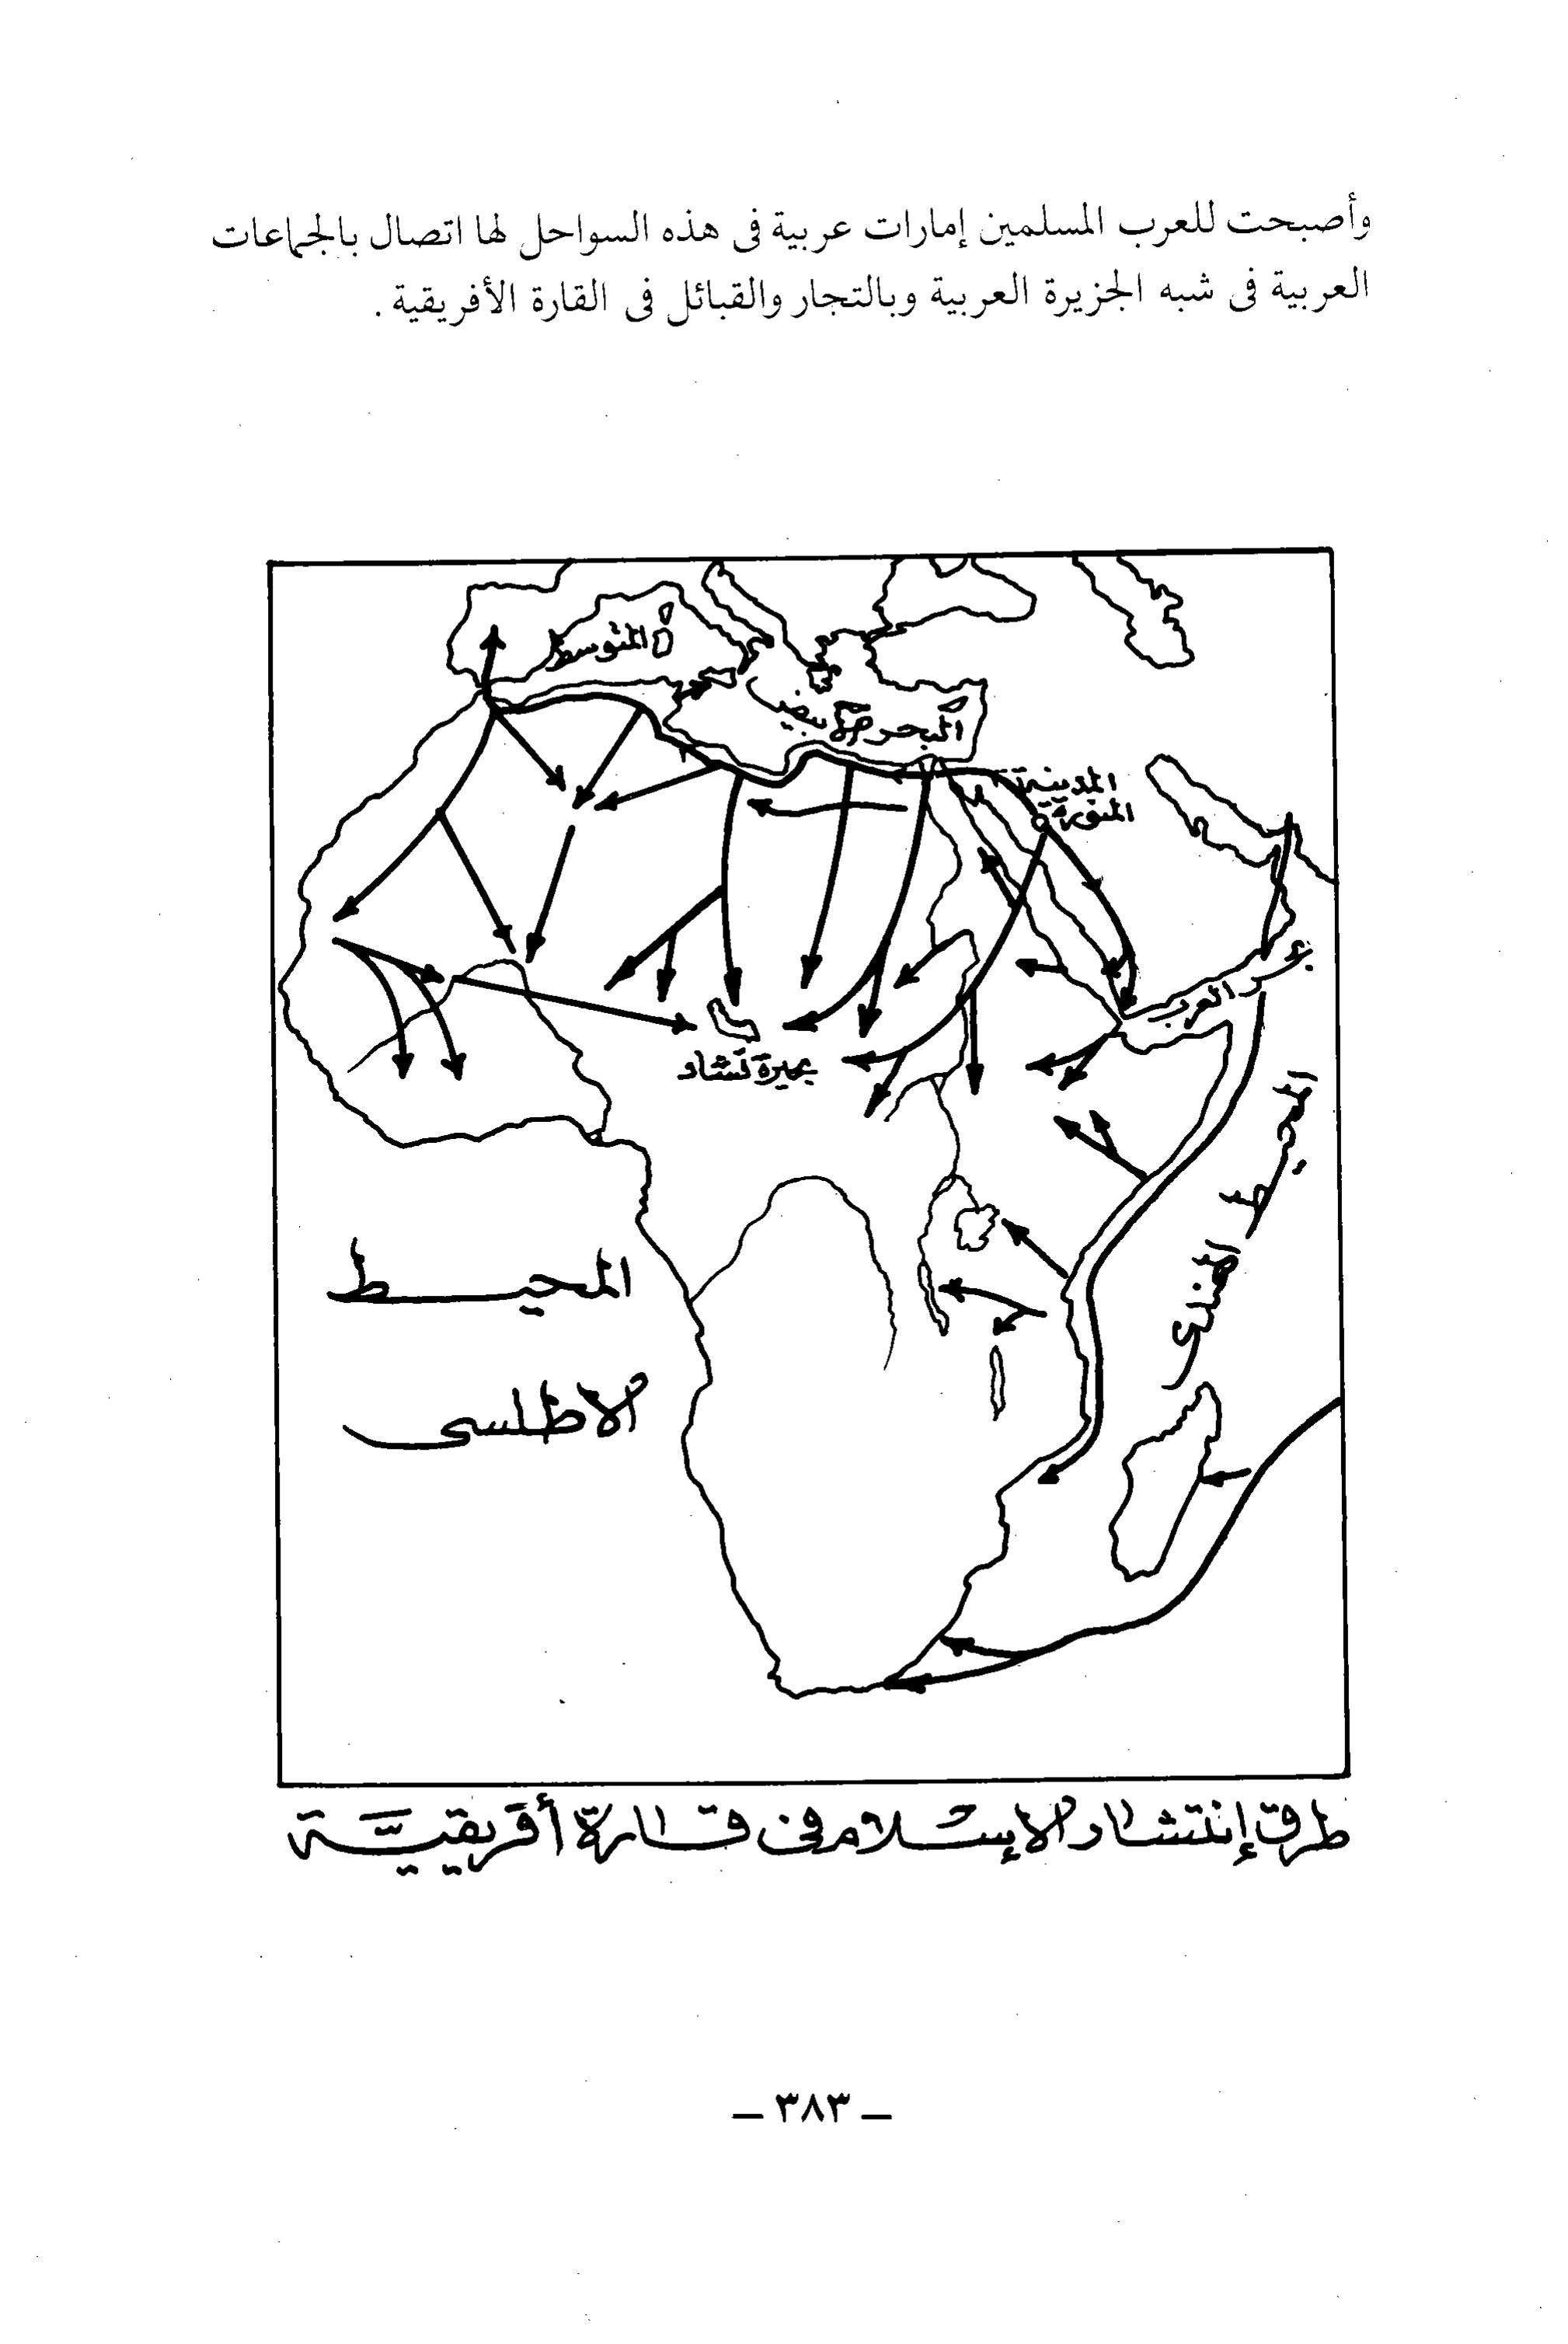 وأصبحت للعرب المسلمين إمارات عربية فى هذه السواحل لها اتصال بالجماعات
العربية فى شبه الجزيرة العربية وبالتجار والقبائل فى القارة الأفريقية .
المتوسط
البحر الأبيض
المدينة
المنورة
بحر العرب
بحيرة تشاد
المحيط الهندى
المحيــط
الاطلسى
طرق إنتشار الإسـلام فى قـارة أفريقيـة
— ٣٨٣ —